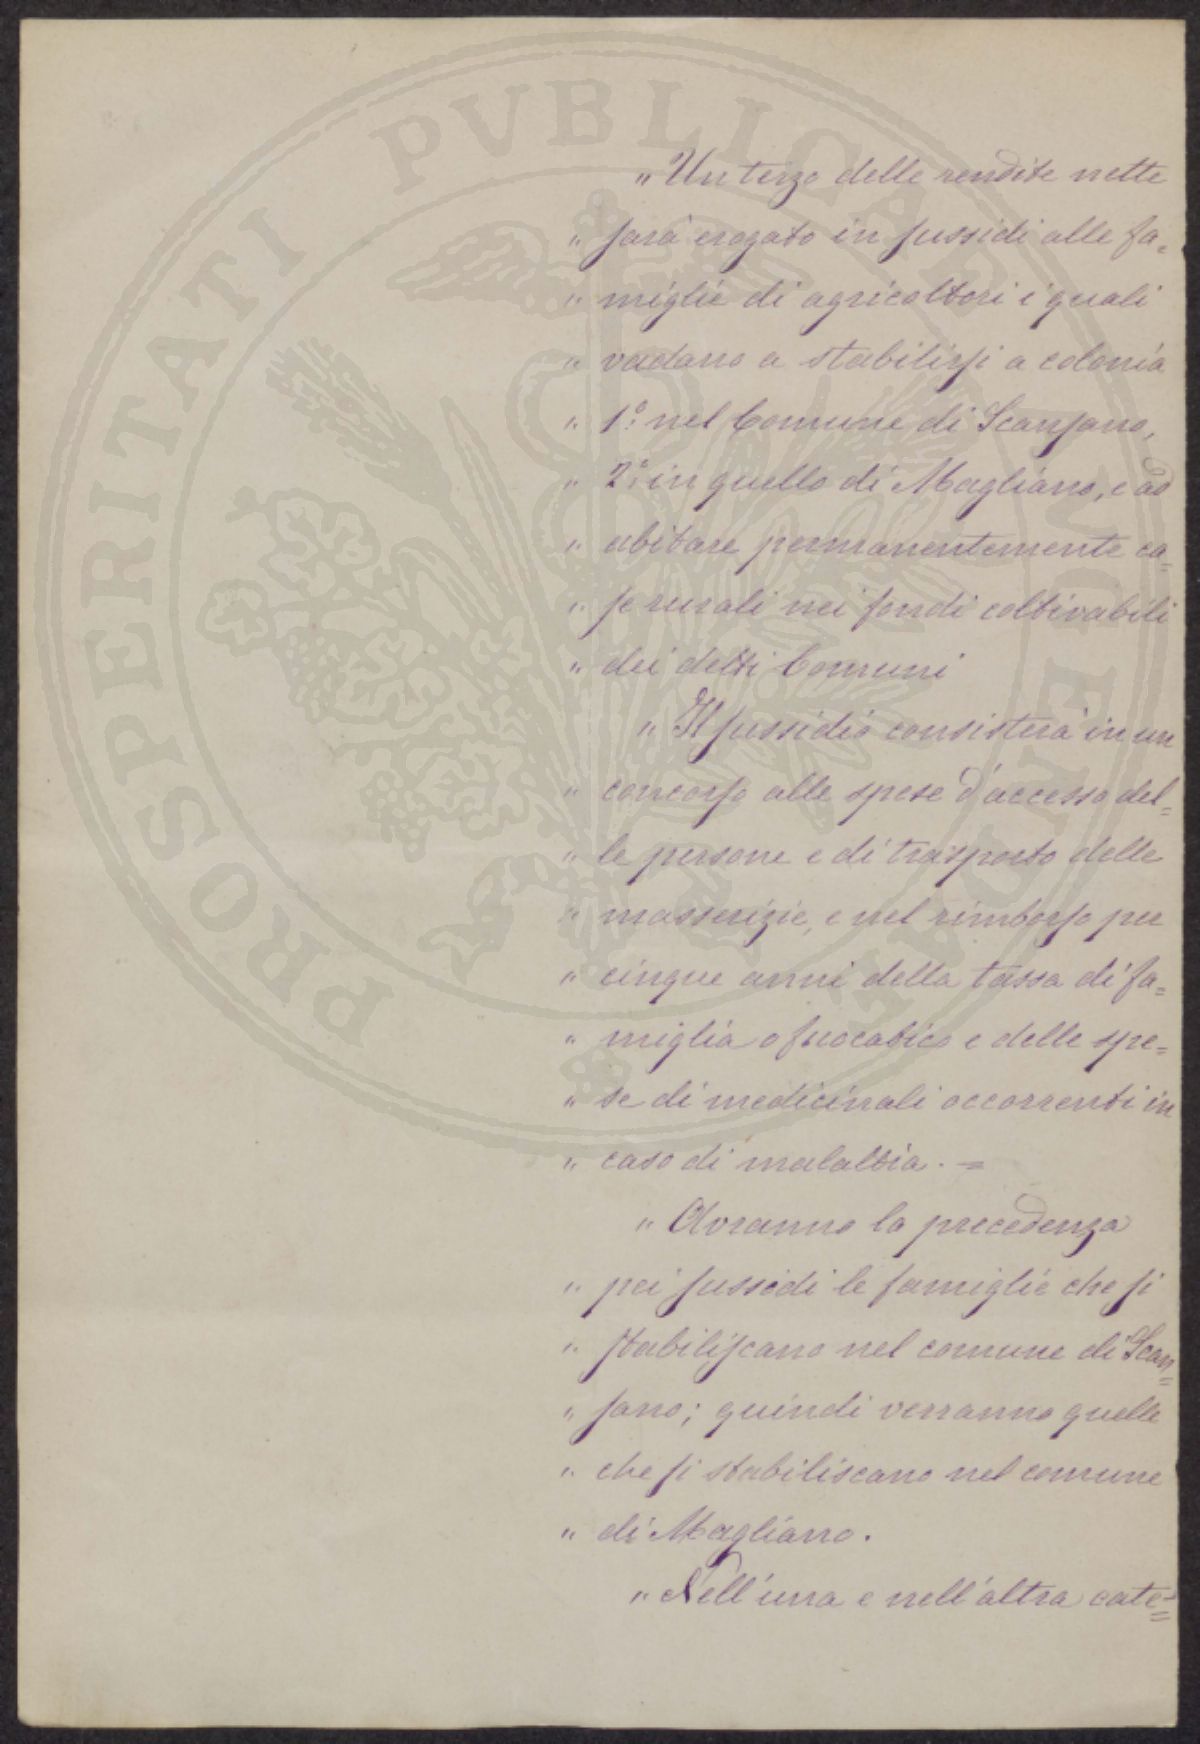 PROSPERITATI PVBLICAE VIGENDAE
„ Un terzo delle rendite nette
„ sarà erogato in sussidi alle fa=
„ miglie di agricoltori i quali
„ vadano a stabilirsi a colonia
„ 1º: nel Comune di Scansano,
„ 2º: in quello di Magliano, e ad
„ abitare permanentemente ca=
„ se rurali nei fondi coltivabili
„ dei detti Comuni
„ Il sussidio consisterà in un
„ concorso alle spese d'accesso del=
„ le persone e di trasporto delle
„ masserizie, e nel rimborso per
„ cinque anni della tassa di fa=
„ miglia o fuocatico e delle spe=
„ se di medicinali occorrenti in
„ caso di malattia. =
„ Avranno la precedenza
„ pei sussidi le famiglie che si
„ stabiliscano nel comune di Scan=
„ sano; quindi verranno quelle
„ che si stabiliscano nel comune
„ di Magliano.
„ Nell'una e nell'altra cate=